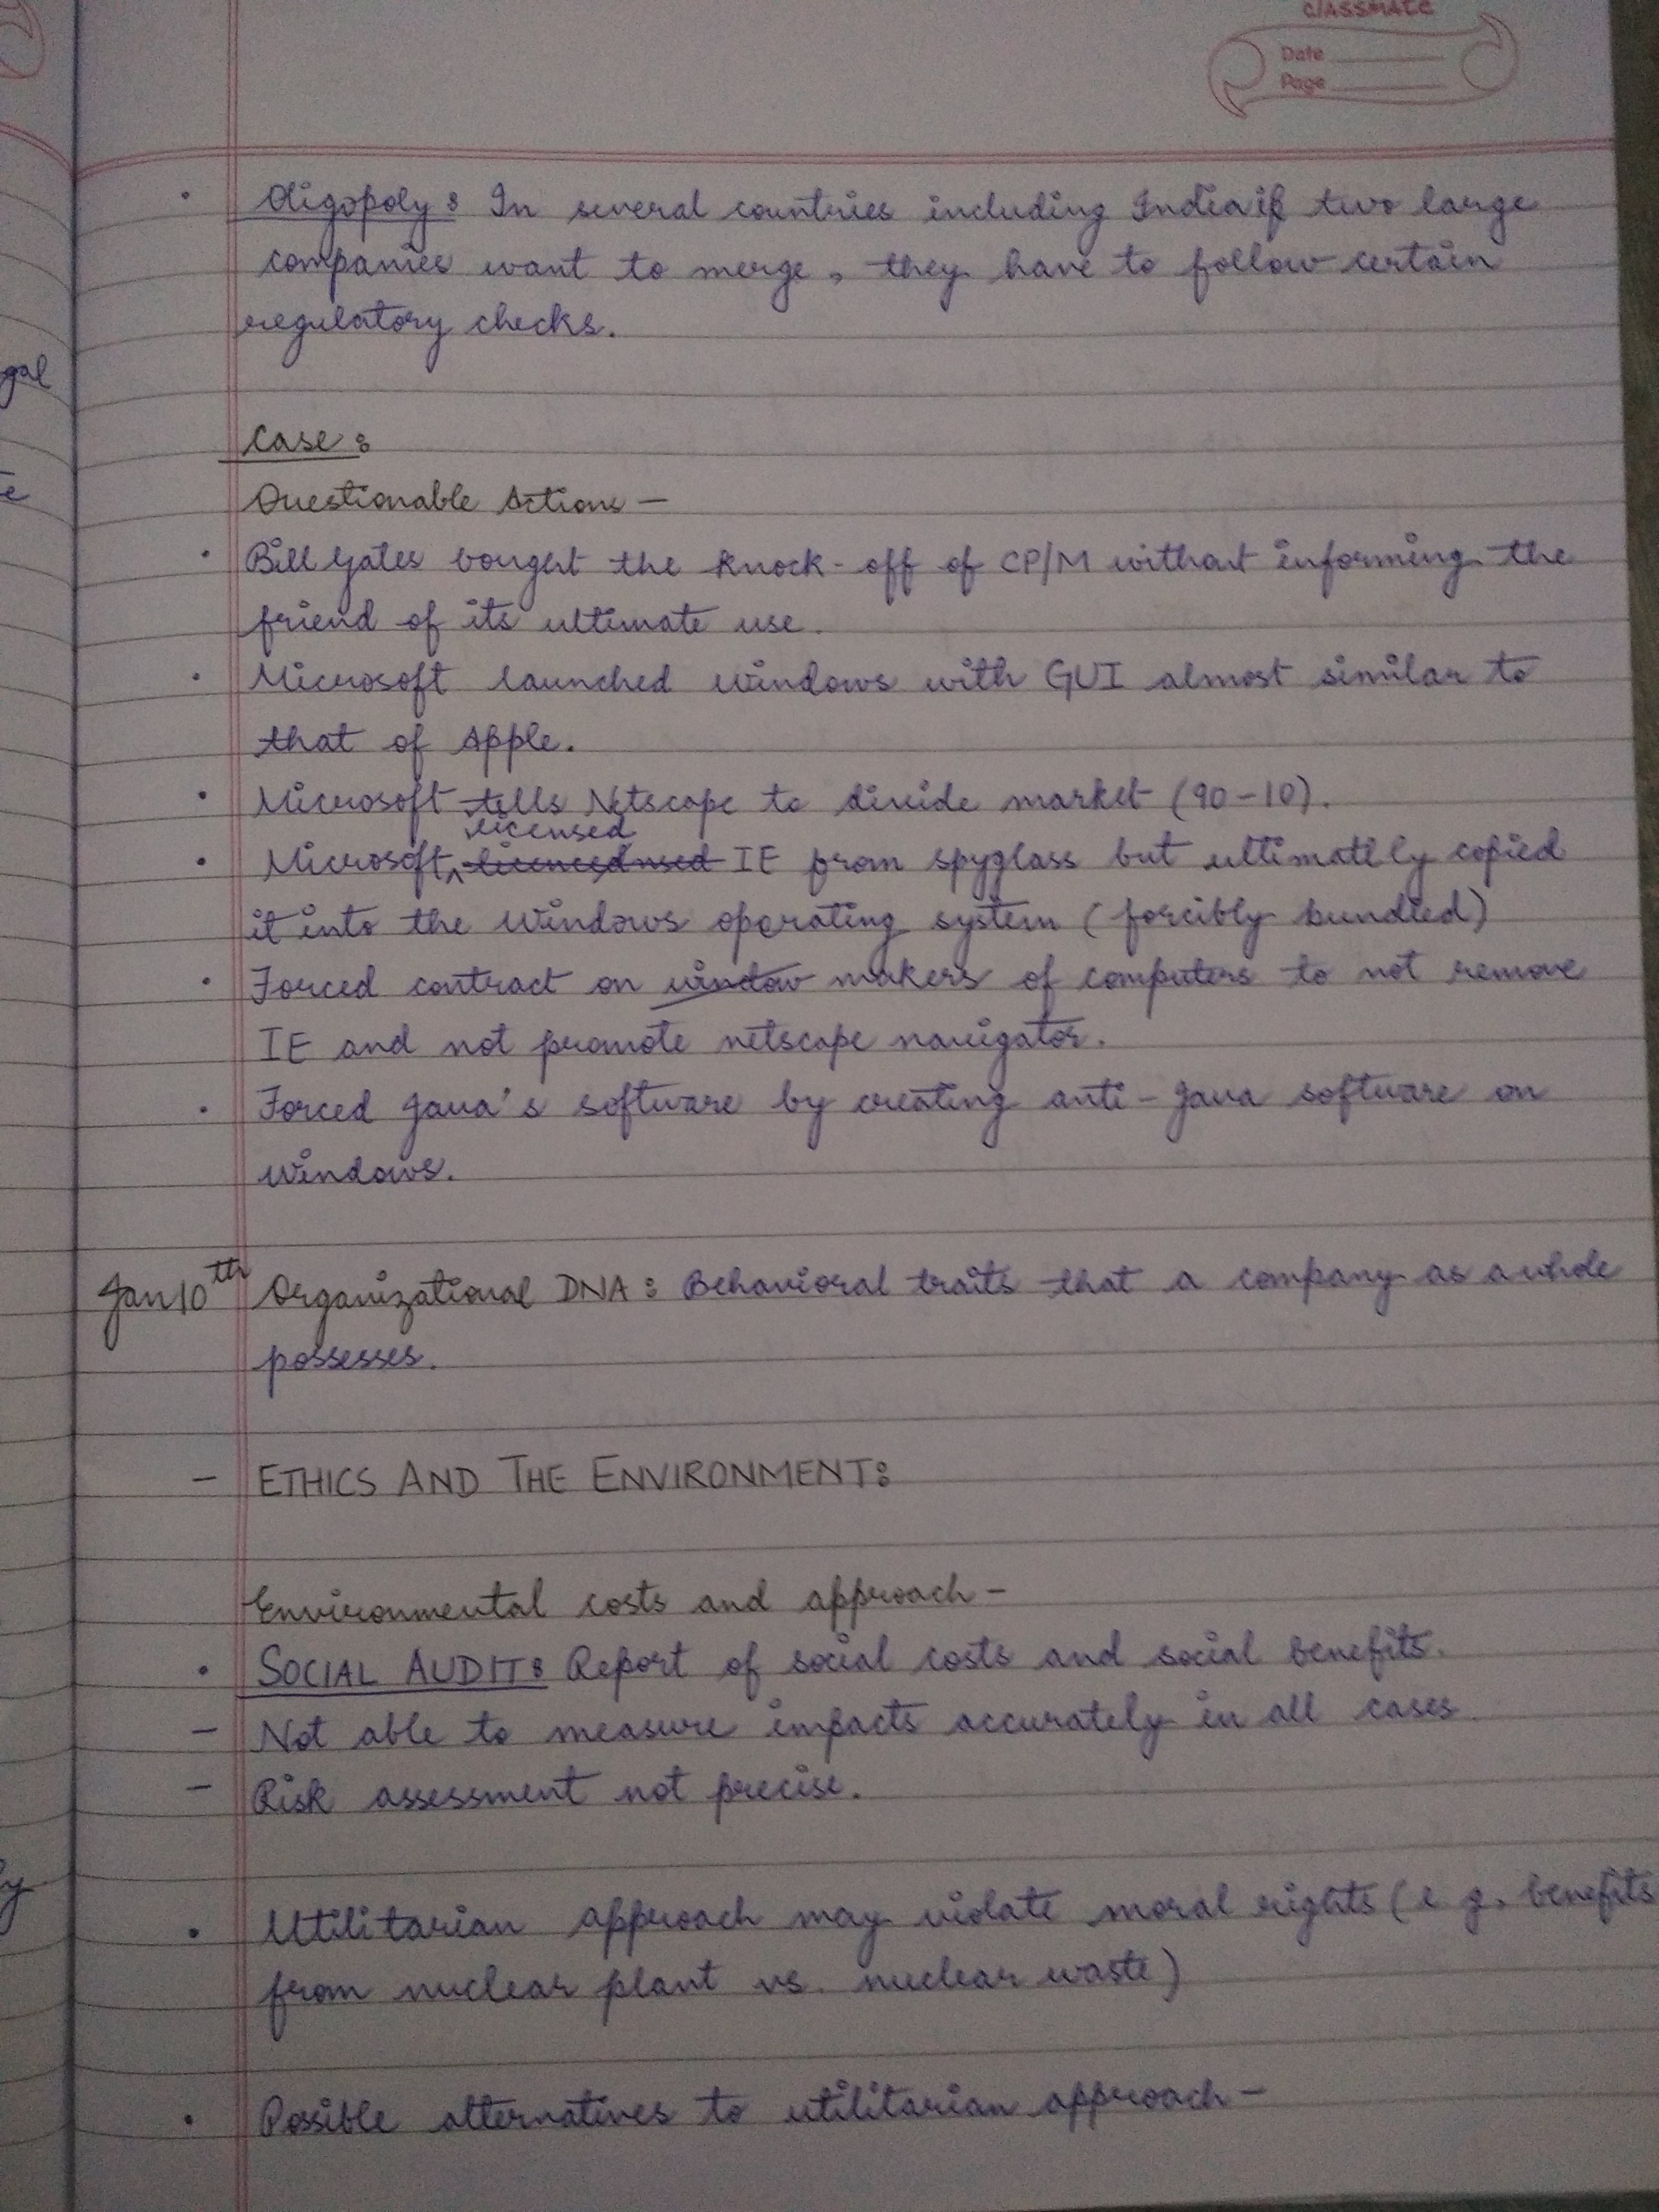 classmate
Date
Page
• Oligopoly: In several countries including India if two large
companies want to merge, they have to follow certain
regulatory checks.
gal
Case:
e
Questionable Actions —
• Bill Gates bought the knock-off of CP/M without informing the
friend of its ultimate use.
• Microsoft launched windows with GUI almost similar to
that of Apple.
• Microsoft tells Netscape to divide market (90-10).
licensed
• Microsoft, IE from spyglass but ultimatlly copied
it into the Windows operating system (forcibly bundled)
• Forced contract on window makers of computers to not remove
IE and not promote netscape navigator.
• Forced Java's software by creating anti-Java software on
windows.
Jan 10th Organizational DNA: Behavioral traits that a company as a whole
possesses.
— ETHICS AND THE ENVIRONMENT:
Environmental costs and approach —
• SOCIAL AUDIT: Report of social costs and social benefits.
— Not able to measure impacts accurately in all cases.
— Risk assessment not precise.
y
• Utilitarian approach may violate moral rights (e.g. benefits
from nuclear plant vs. nuclear waste)
• Possible alternatives to utilitarian approach —